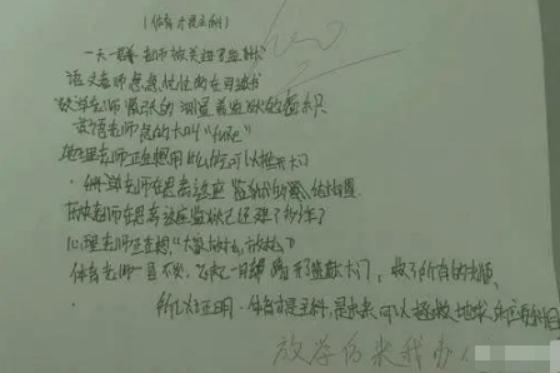 (体育才是主科)
一天一群老师被关进了监狱
语文老师急急忙忙的在写遗书
数学老师紧张的测量着监狱的面积
英语老师慌的大叫"fuck"
地理老师正在想用什么可以推开大门
老师在思考这座监狱的结构
历史老师在思考这座监狱已经建了多少年了
心理老师正在想,"大家放松,放松"
体育老师一言不发,飞起一脚踢开了监狱大门,救了所有的老师,
所以证明:体育才是主科,是未来可以拯救地球的科目
放学后来我办